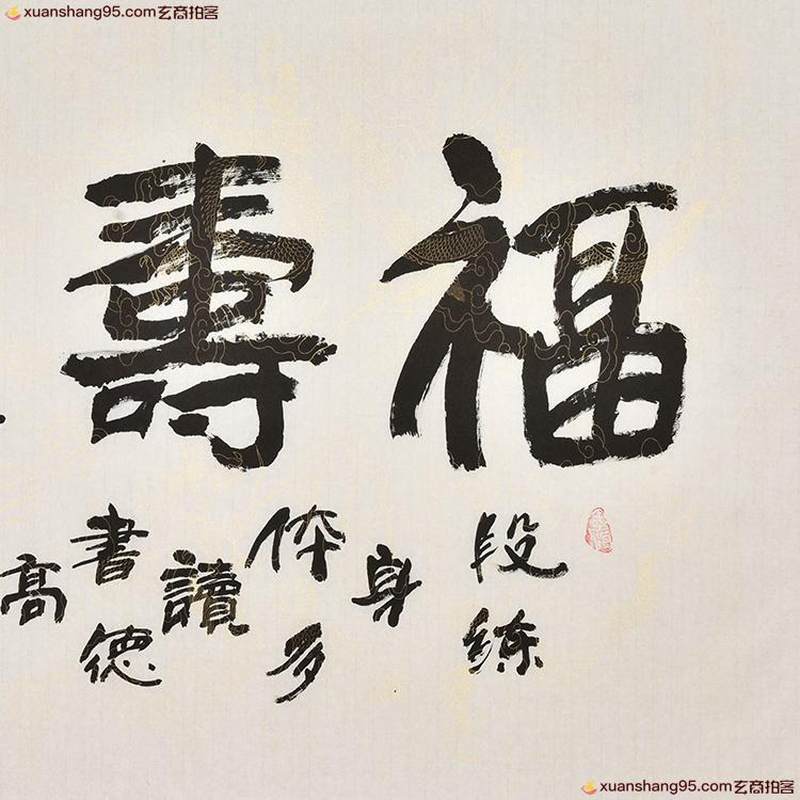 xuanshang95.com玄商拍客
福壽
段练
身
体多
讀
書德
高
xuanshang95.com玄商拍客